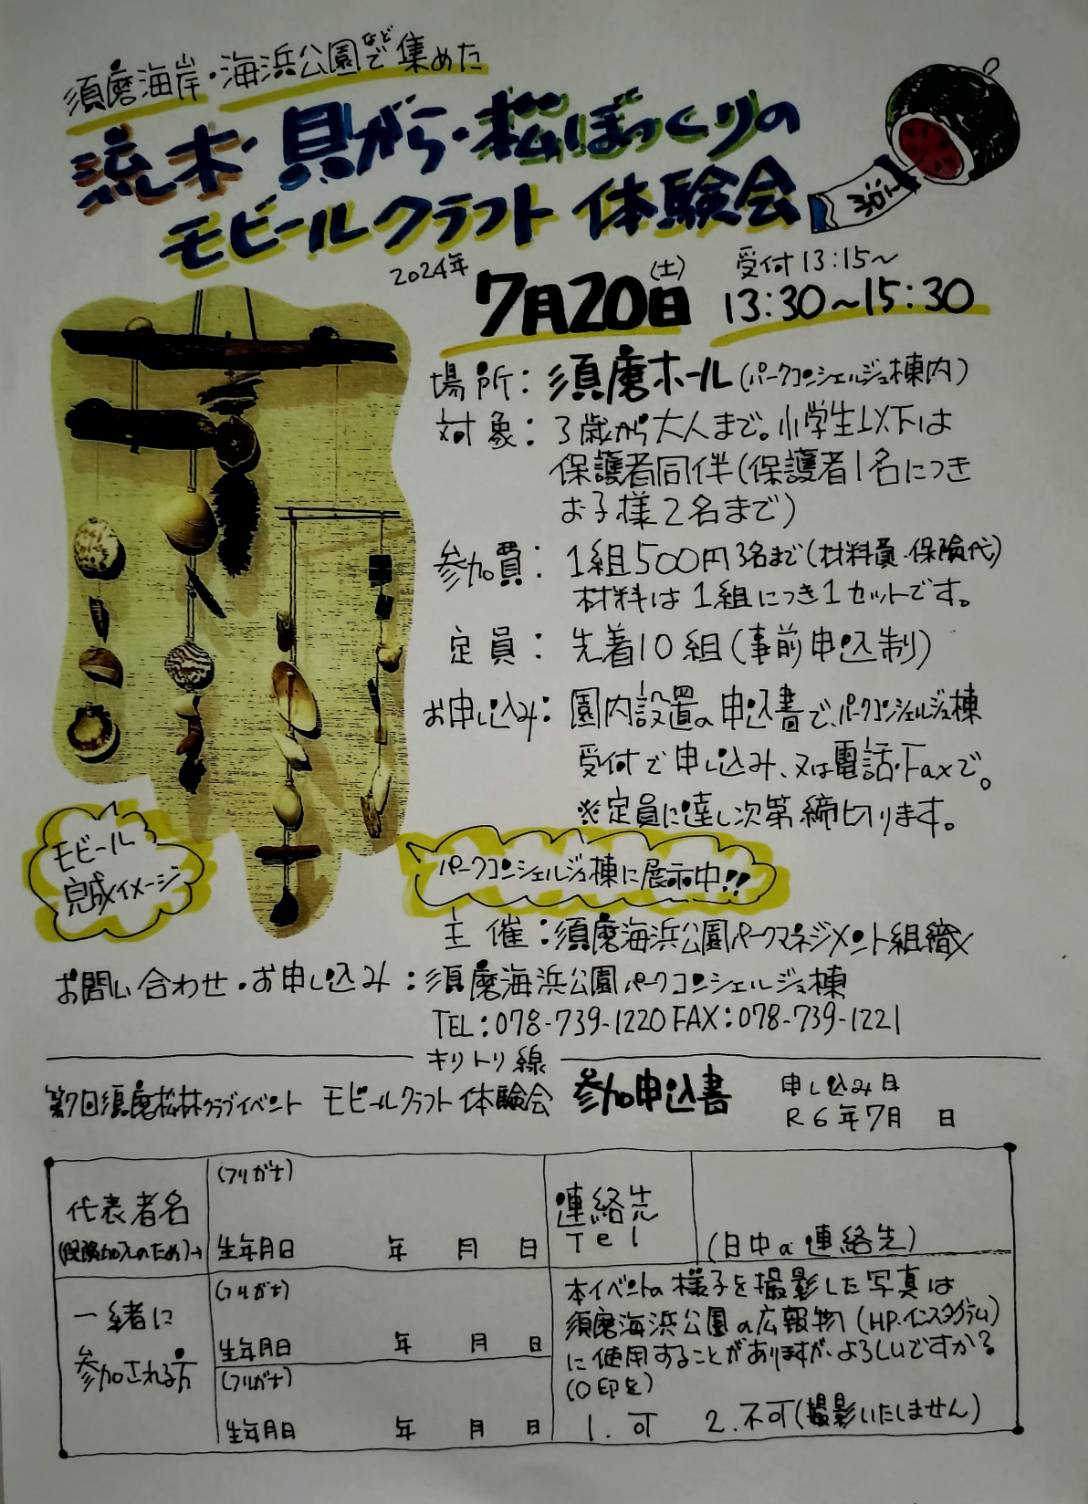 須磨海岸・海浜公園などで集めた
流木・貝がら・松ぼっくりの
モビールクラフト 体験会
2024年
7月20日(土)
受付13:15~
13:30~15:30
場所:須磨ホール(パークコンシェルジュ棟内)
対象:3歳から大人まで。小学生以下は
保護者同伴(保護者1名につき
お子様2名まで)
参加費:1組500円3名まで(材料費・保険代)
材料は1組につき1セットです。
定員:先着10組(事前申込制)
お申し込み:園内設置の申込書で、パークコンシェルジュ棟
受付で申し込み、又は電話・Faxで。
※定員に達し次第締め切ります。
モビール
完成イメージ
パークコンシェルジュ棟に展示中!!
主催:須磨海浜公園パークマネジメント組織X
お問い合わせ・お申し込み:須磨海浜公園パークコンシェルジュ棟
TEL:078-739-1220 FAX:078-739-1221
キリトリ線
第7回須磨松林クラブイベント モビールクラフト体験会 参加申込書
申し込み日
R6年7月 日
代表者名
(保険加入のため)→
(フリガナ)
生年月日 年 月 日
連絡先
Tel
(日中の連絡先)
一緒に
参加される方
(フリガナ)
生年月日 年 月 日
(フリガナ)
生年月日 年 月 日
本イベントの様子を撮影した写真は
須磨海浜公園の広報物(HP・インスタグラム)
に使用することがありますが、よろしいですか?
(〇印を)
1.可 2.不可(撮影いたしません)